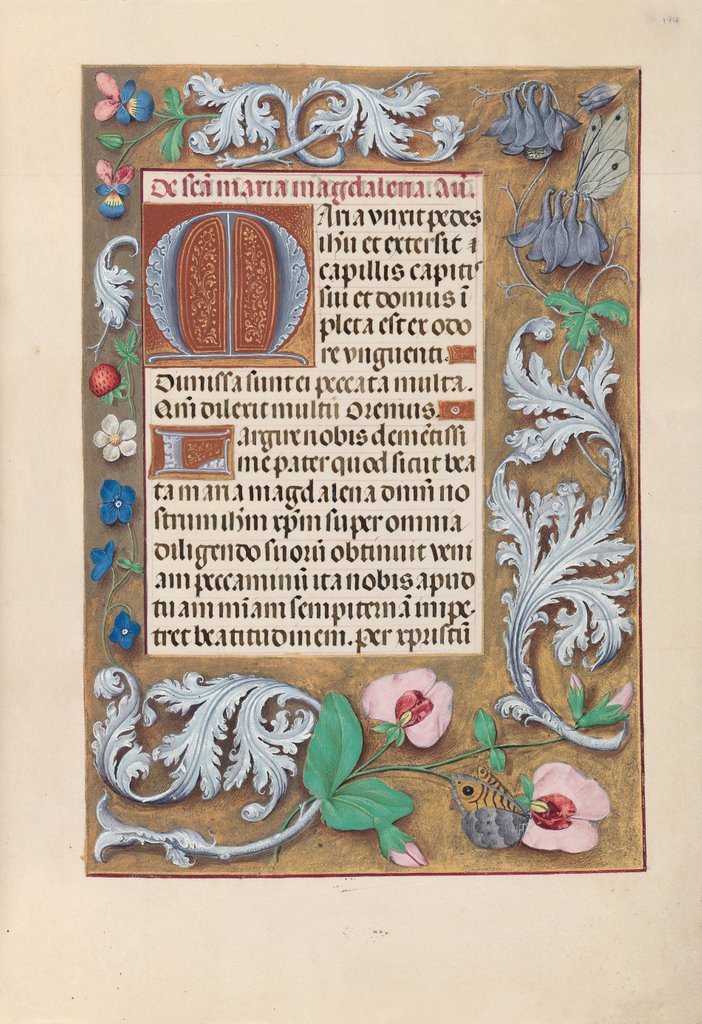 194
De scā maria magdalena. Añ.
MAria vnxit pedes
ihū et extersit
capillis capitis
sui et domus ī
pleta est ex odo
re vnguenti.
Dimissa sunt ei peccata multa.
Qm̄ dilexit multū Oremus.
Largire nobis clemētissi
me pater quod sicut bea
ta maria magdalena dnm̄ no
strum ihm̄ xpm̄ super omnia
diligendo suorū obtinuit veni
am peccaminū ita nobis apud
tuam miām sempiternā impe-
tret beatitudinem. per xpristū